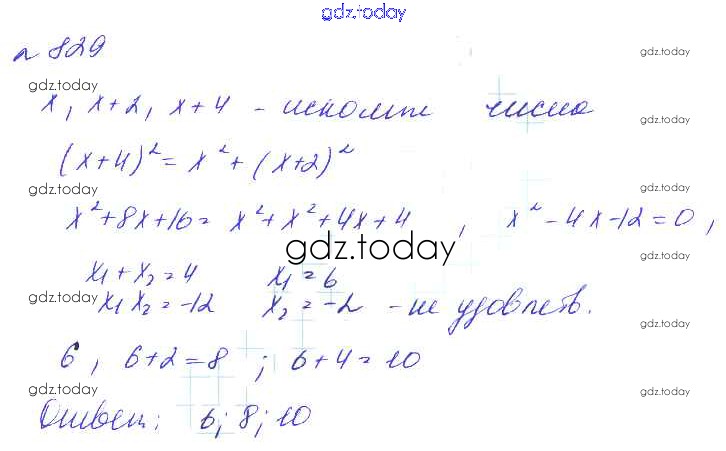 gdz.today
n 829
gdz.today
gdz.today
x, x+2, x+4 - искомые числа
gdz.today
(x+4)² = x² + (x+2)²
gdz.today
gdz.today
x²+8x+16 = x²+x²+4x+4, x²-4x-12=0,
gdz.today
gdz.today
x₁+x₂=4 x₁=6
x₁x₂=-12 x₂=-2 - не удовлетв.
gdz.today
gdz.today
6, 6+2=8; 6+4=10
gdz.today
gdz.today
Ответ: 6; 8; 10